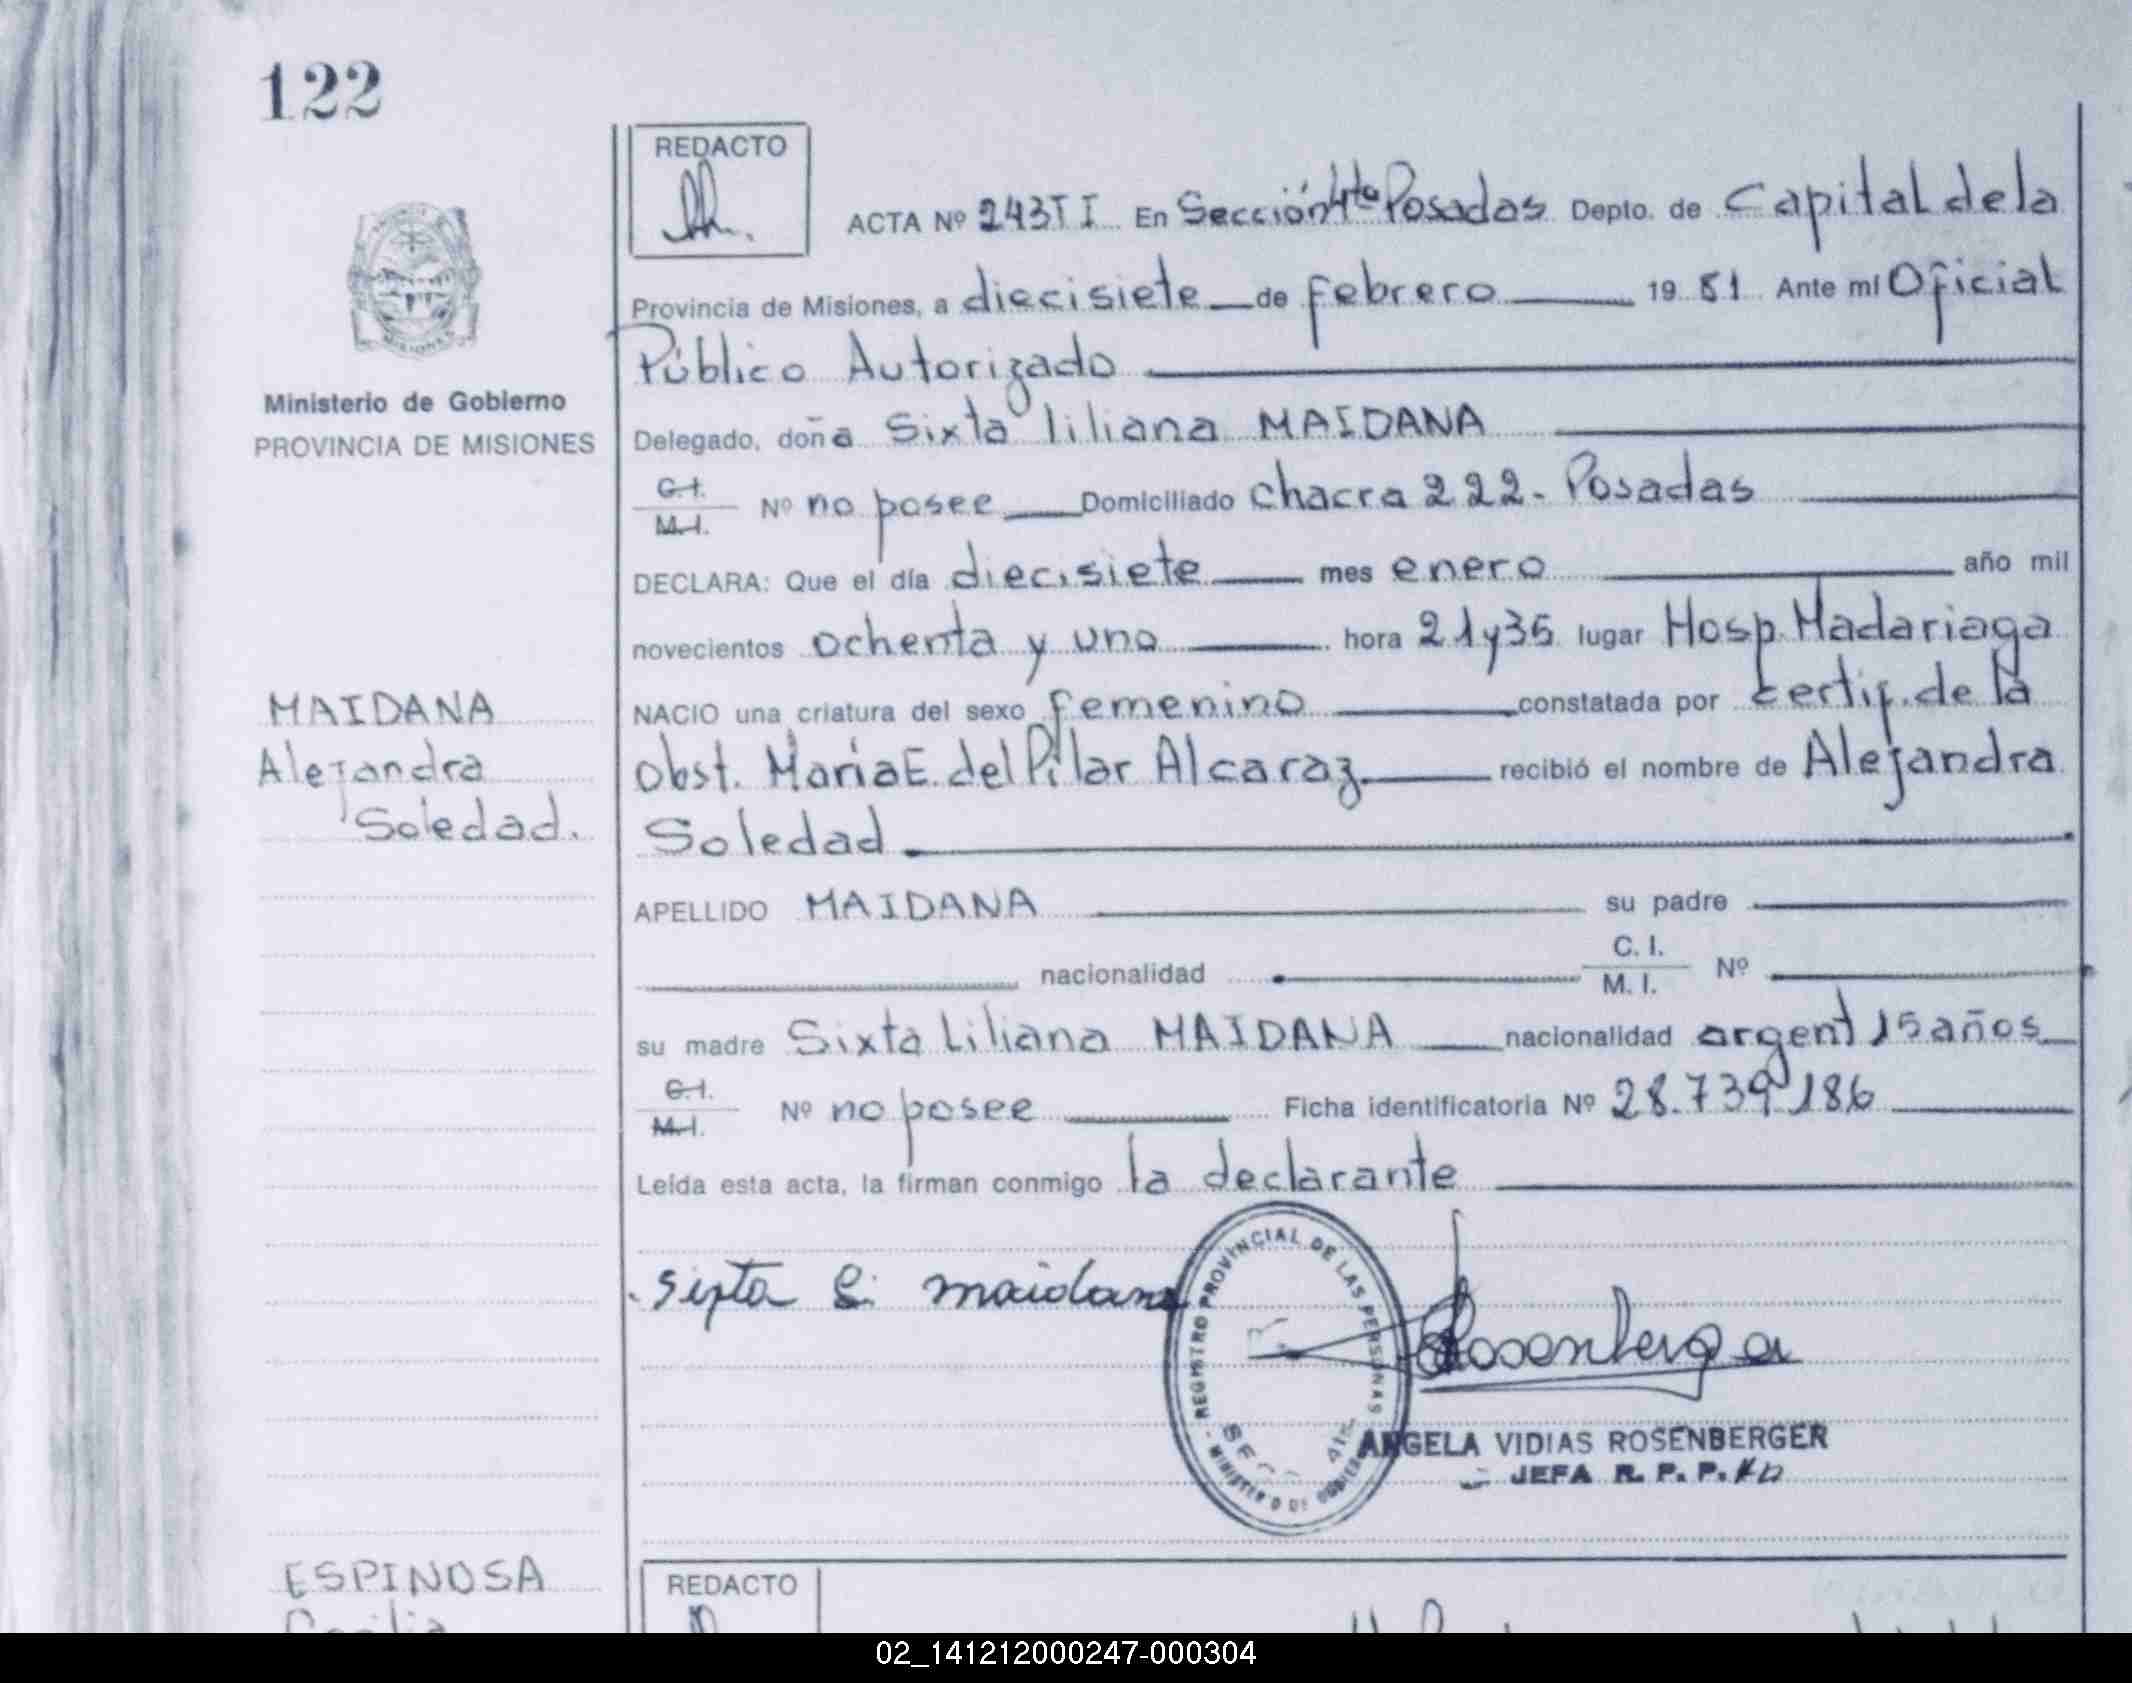 122
REDACTO
ACTA Nº 243 T I En Sección 4ta Posadas Depto. de Capital de la
Provincia de Misiones, a diecisiete de febrero 19 81 Ante mí Oficial
Público Autorizado
Ministerio de Gobierno
PROVINCIA DE MISIONES
Delegado, doña Sixta liliana MAIDANA
C.I.
M.I.
Nº no posee Domiciliado chacra 222 - Posadas
DECLARA: Que el día diecisiete mes enero año mil
novecientos ochenta y uno hora 21 y 35 lugar Hosp. Madariaga
NACIO una criatura del sexo femenino constatada por certif. de la
MAIDANA
Alejandra
Soledad.
Obst. María E. del Pilar Alcaraz recibió el nombre de Alejandra
Soledad
APELLIDO MAIDANA su padre
nacionalidad C. I.
M. I. Nº
su madre Sixta Liliana MAIDANA nacionalidad argent 15 años
C.I.
M.I.
Nº no posee Ficha identificatoria Nº 28.739.186
Leída esta acta, la firman conmigo la declarante
Sixta L. maidana
REGISTRO PROVINCIAL DE LAS PERSONAS
MINISTERIO DE GOBIERNO
Rosenberger
ANGELA VIDIAS ROSENBERGER
JEFA R. P. P.
ESPINOSA
Cecilia
REDACTO
02_141212000247-000304